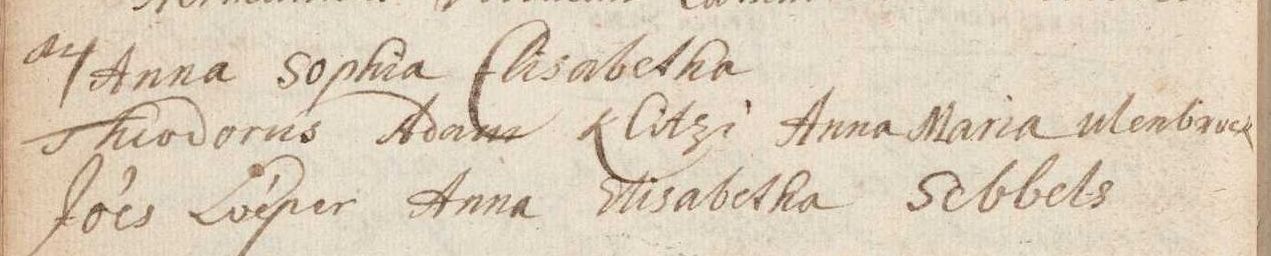 Anna Sophia Elisabetha
Theodorus Adam Klitzi Anna Maria ulenbrock
Joes Loeper Anna Elisabetha Sebbels